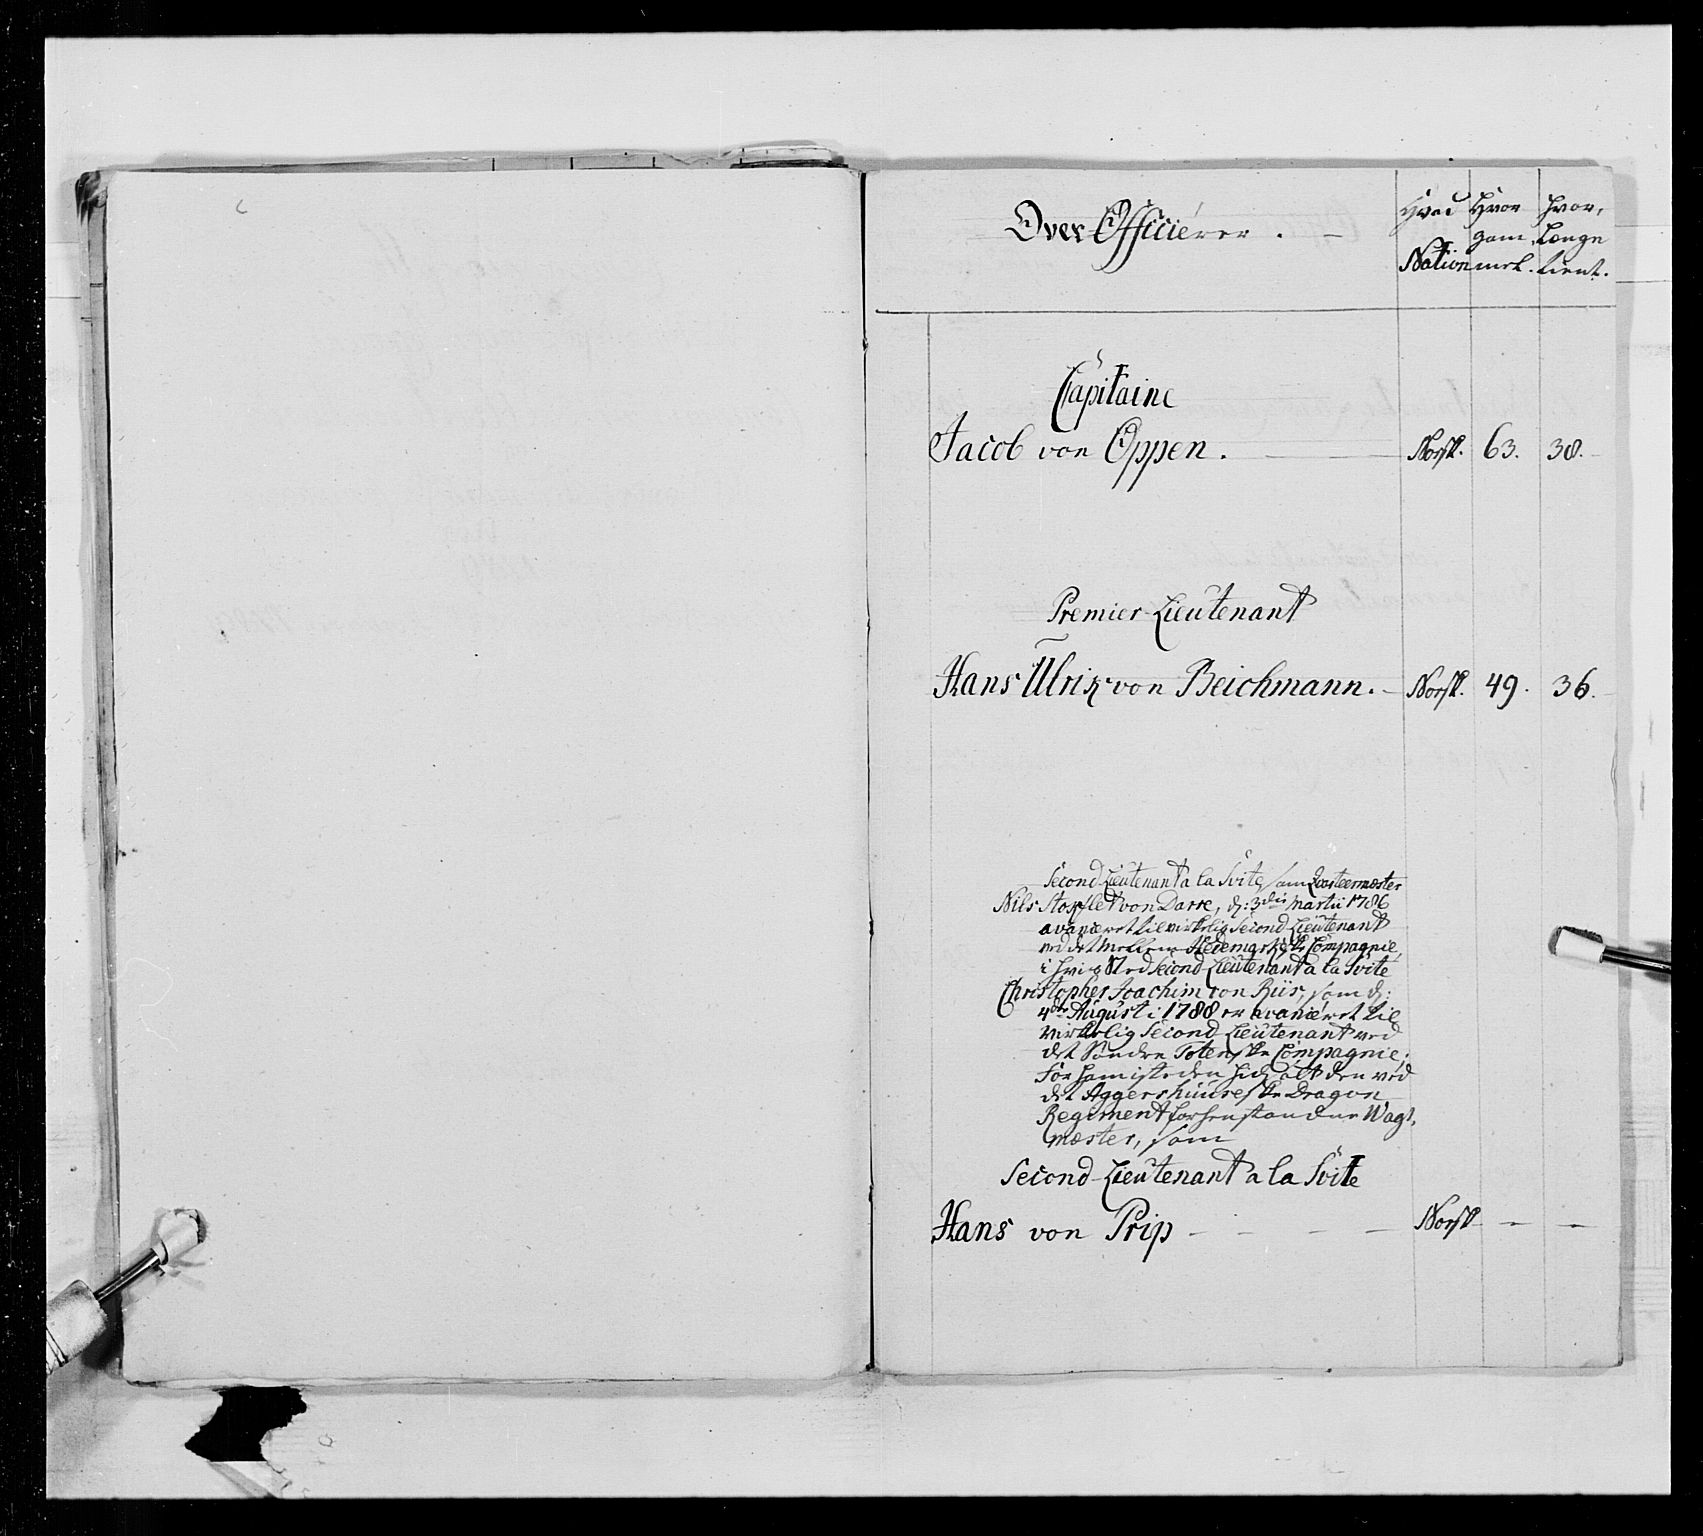 Over Officiérer. —
Hvad Nation
Hvor gam- mel.
Hvor- Længe tient.
Capitaine
Jacob von Oppen. — Norsk. 63. 38.
Premier-Lieutenant
Hans Ulrik von Beichmann. — Norsk. 49. 36.
Second-Lieutenant a la Svite, som Qvarteermæster
Nils Stokflet von Darre, d: 3die Martii 1786
avanceret til virkelig Second-Lieutenant
ved det Mellem Hedemarkske Compagnie,
i hvis Sted Second-Lieutenant a la Svite
Christopher Joachim von Riis, som d:
4de August i 1788 er avanceret til
virkelig Second-Lieutenant ved
det Søndre Totenske Compagnie;
For ham isteden hid den ved
det Aggershuusiske Dragon
Regiment forhenstandne Wagt-
mæster, som
Second-Lieutenant a la Svite
Hans von Prip - - - — Norsk — —